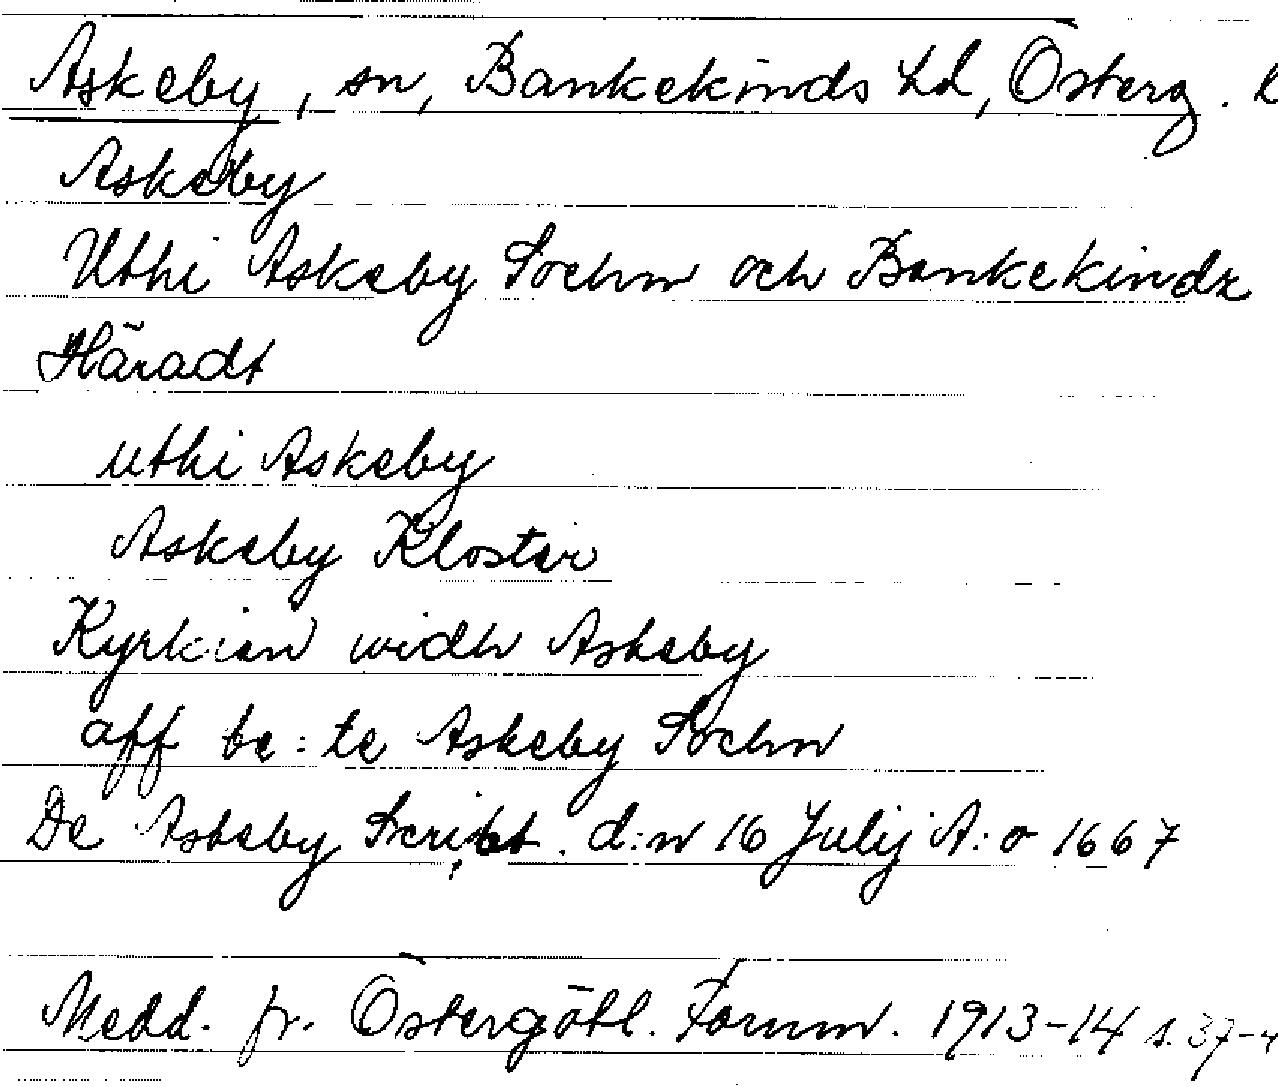 Askeby, sn, Bankekinds hd, Österg. l
Askeby
Uthi Askeby Sochn och Bankekindz
Häradt
uthi Askeby
Askeby Kloster
Kyrkian widh Askeby
aff be:te Askeby Sochn
De Askeby Script. d:n 16 Julij A:o 1667
Medd. fr. Östergötl. Fornm. 1913-14 s. 37-4